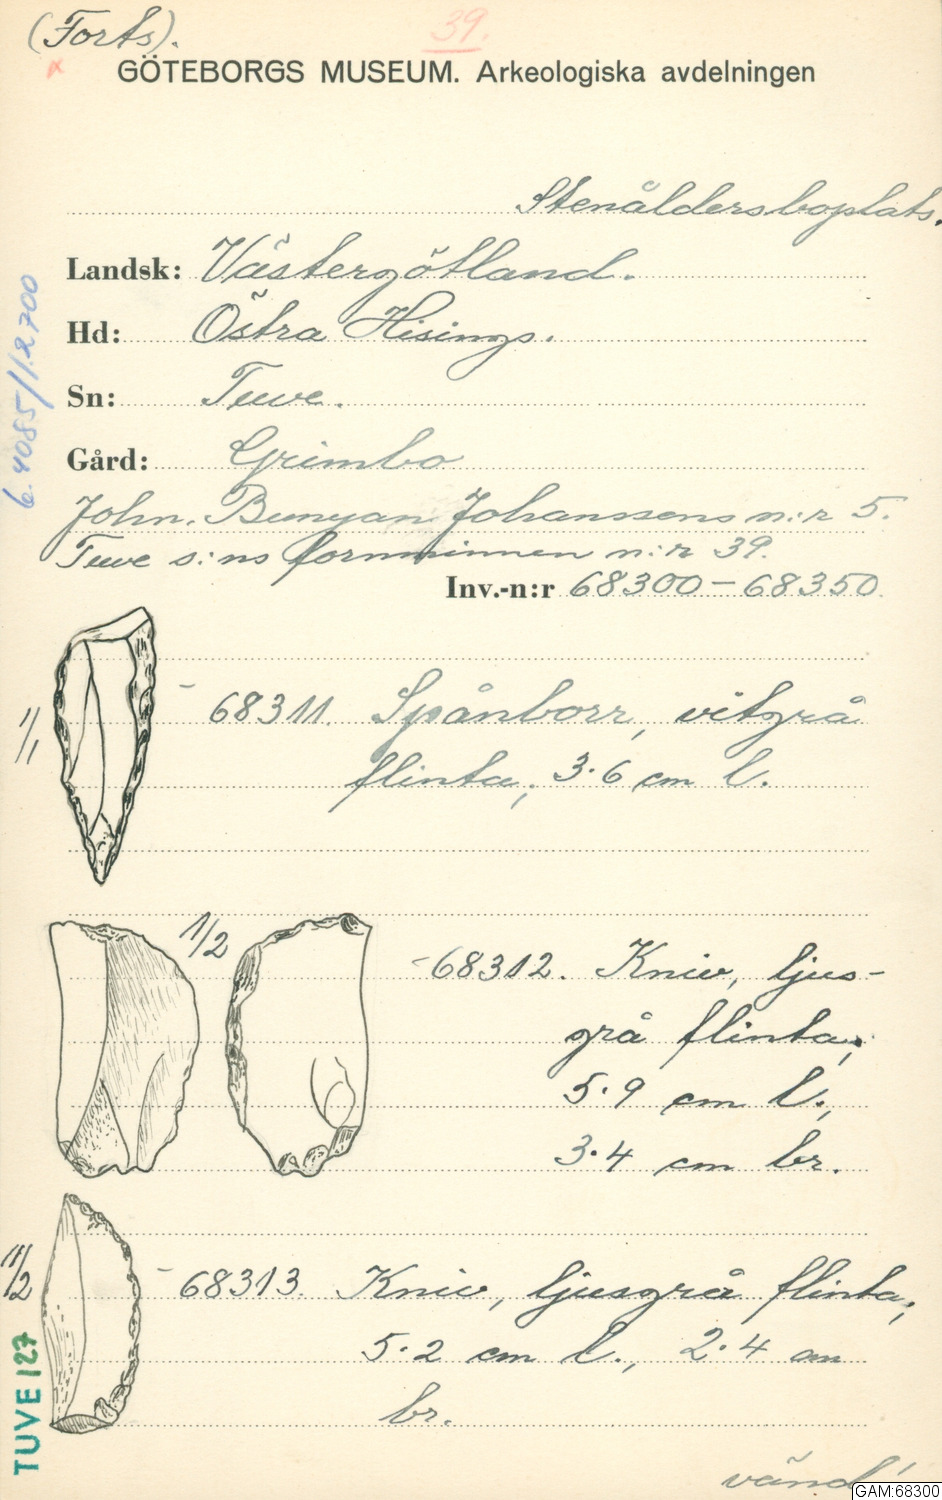 (Forts).
39.
x
GÖTEBORGS MUSEUM. Arkeologiska avdelningen
Stenåldersboplats.
Landsk: Västergötland.
Hd: Östra Hisings.
Sn: Tuve.
Gård: Grimbo
6.4085/1.2.700
John. Bunyan Johanssens n:r 5.
Tuve s:ns fornminnen n:r 39.
Inv.-n:r 68300-68350.
1/1
- 68311. Spånborr, vitgrå
flinta, 3.6 cm l.
1/2
-68312. Kniv, ljus-
grå flinta,
5.9 cm l.,
3.4 cm br.
1/2
- 68313. Kniv, ljusgrå flinta,
5.2 cm l., 2.4 cm
br.
TUVE 127
vänd!
GAM:68300